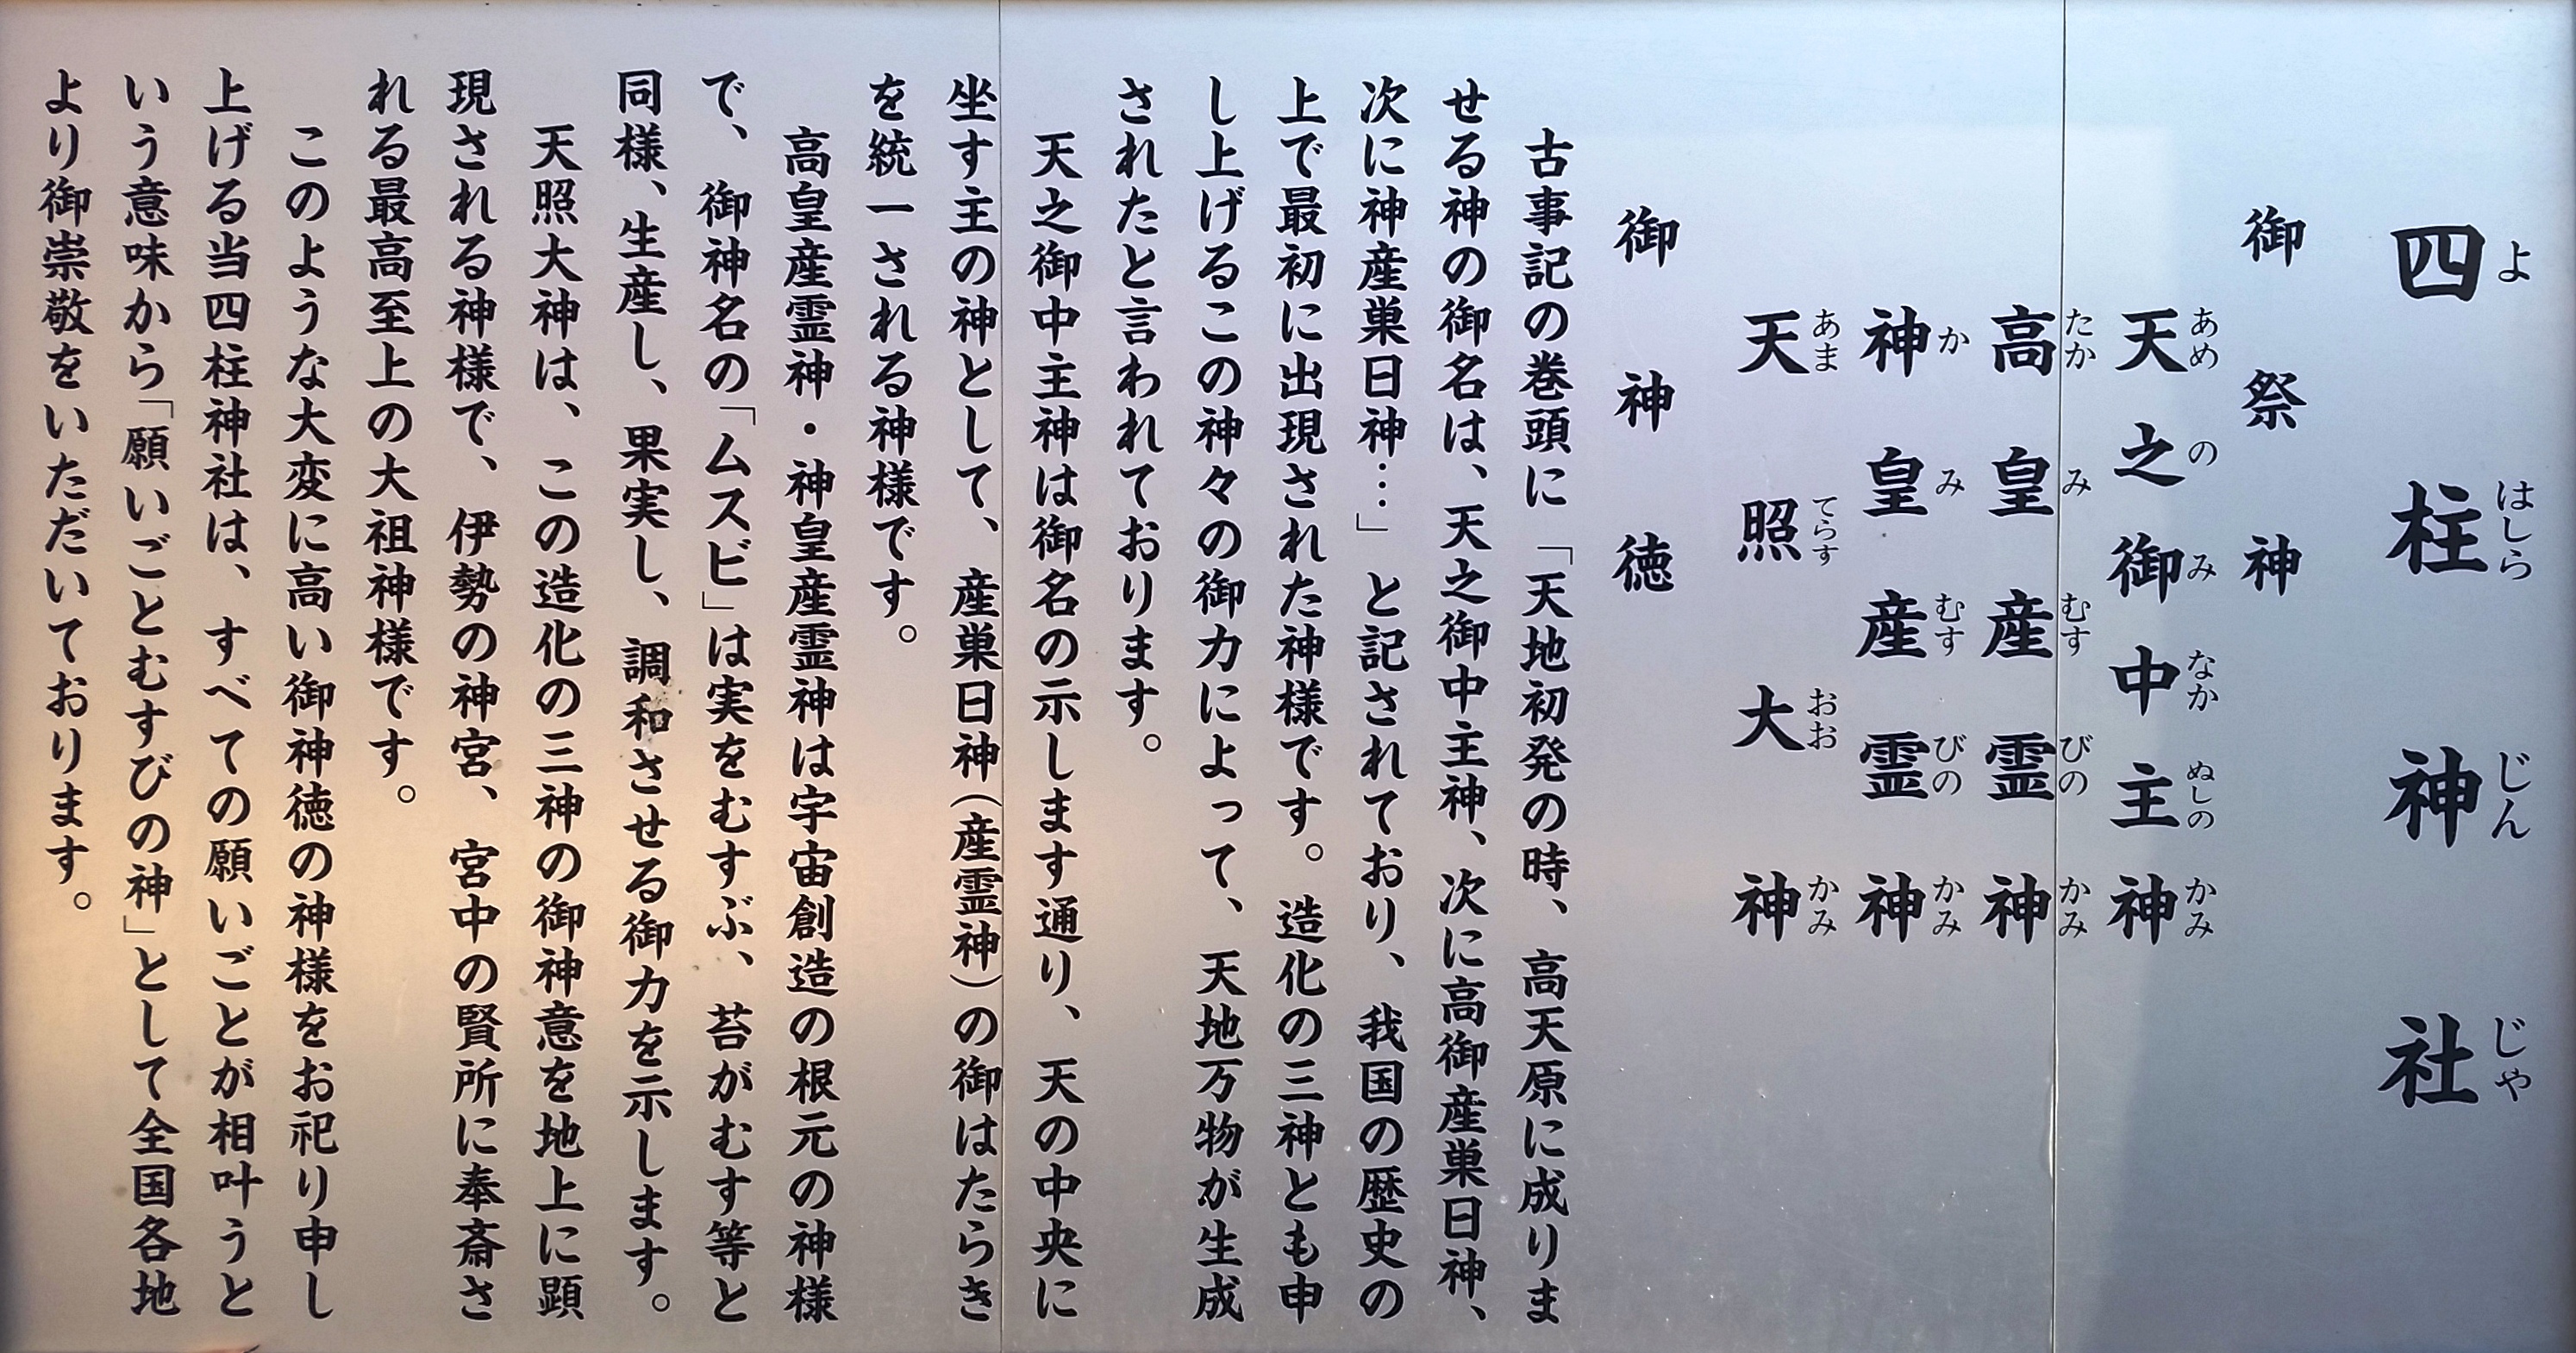 四柱神社
よ はしら じん じや
御祭神
天之御中主神
あめ の み なか ぬしの かみ
高皇産霊神
たか み むす びの かみ
神皇産霊神
か み むす びの かみ
天照大神
あま てらす おお かみ
御神徳
古事記の巻頭に「天地初発の時、高天原に成りま
せる神の御名は、天之御中主神、次に高御産巣日神、
次に神産巣日神…」と記されており、我国の歴史の
上で最初に出現された神様です。造化の三神とも申
し上げるこの神々の御力によって、天地万物が生成
されたと言われております。
天之御中主神は御名の示します通り、天の中央に
坐す主の神として、産巣日神（産霊神）の御はたらき
を統一される神様です。
高皇産霊神・神皇産霊神は宇宙創造の根元の神様
で、御神名の「ムスビ」は実をむすぶ、苔がむす等と
同様、生産し、果実し、調和させる御力を示します。
天照大神は、この造化の三神の御神意を地上に顕
現される神様で、伊勢の神宮、宮中の賢所に奉斎さ
れる最高至上の大祖神様です。
このような大変に高い御神徳の神様をお祀り申し
上げる当四柱神社は、すべての願いごとが相叶うと
いう意味から「願いごとむすびの神」として全国各地
より御崇敬をいただいております。